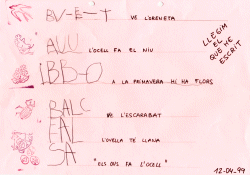 BV-E-T VE L'ORENETA
AUU L'OCELL FA EL NIU
iBB-O A LA PRIMAVERA HI HA FLORS
BALC VE L'ESCARABAT
EAL L'OVELLA TÉ LLANA
SA "ELS OUS FA L'OCELL"
LLEGIM
EL
QUE HE
ESCRIT
12-04-99